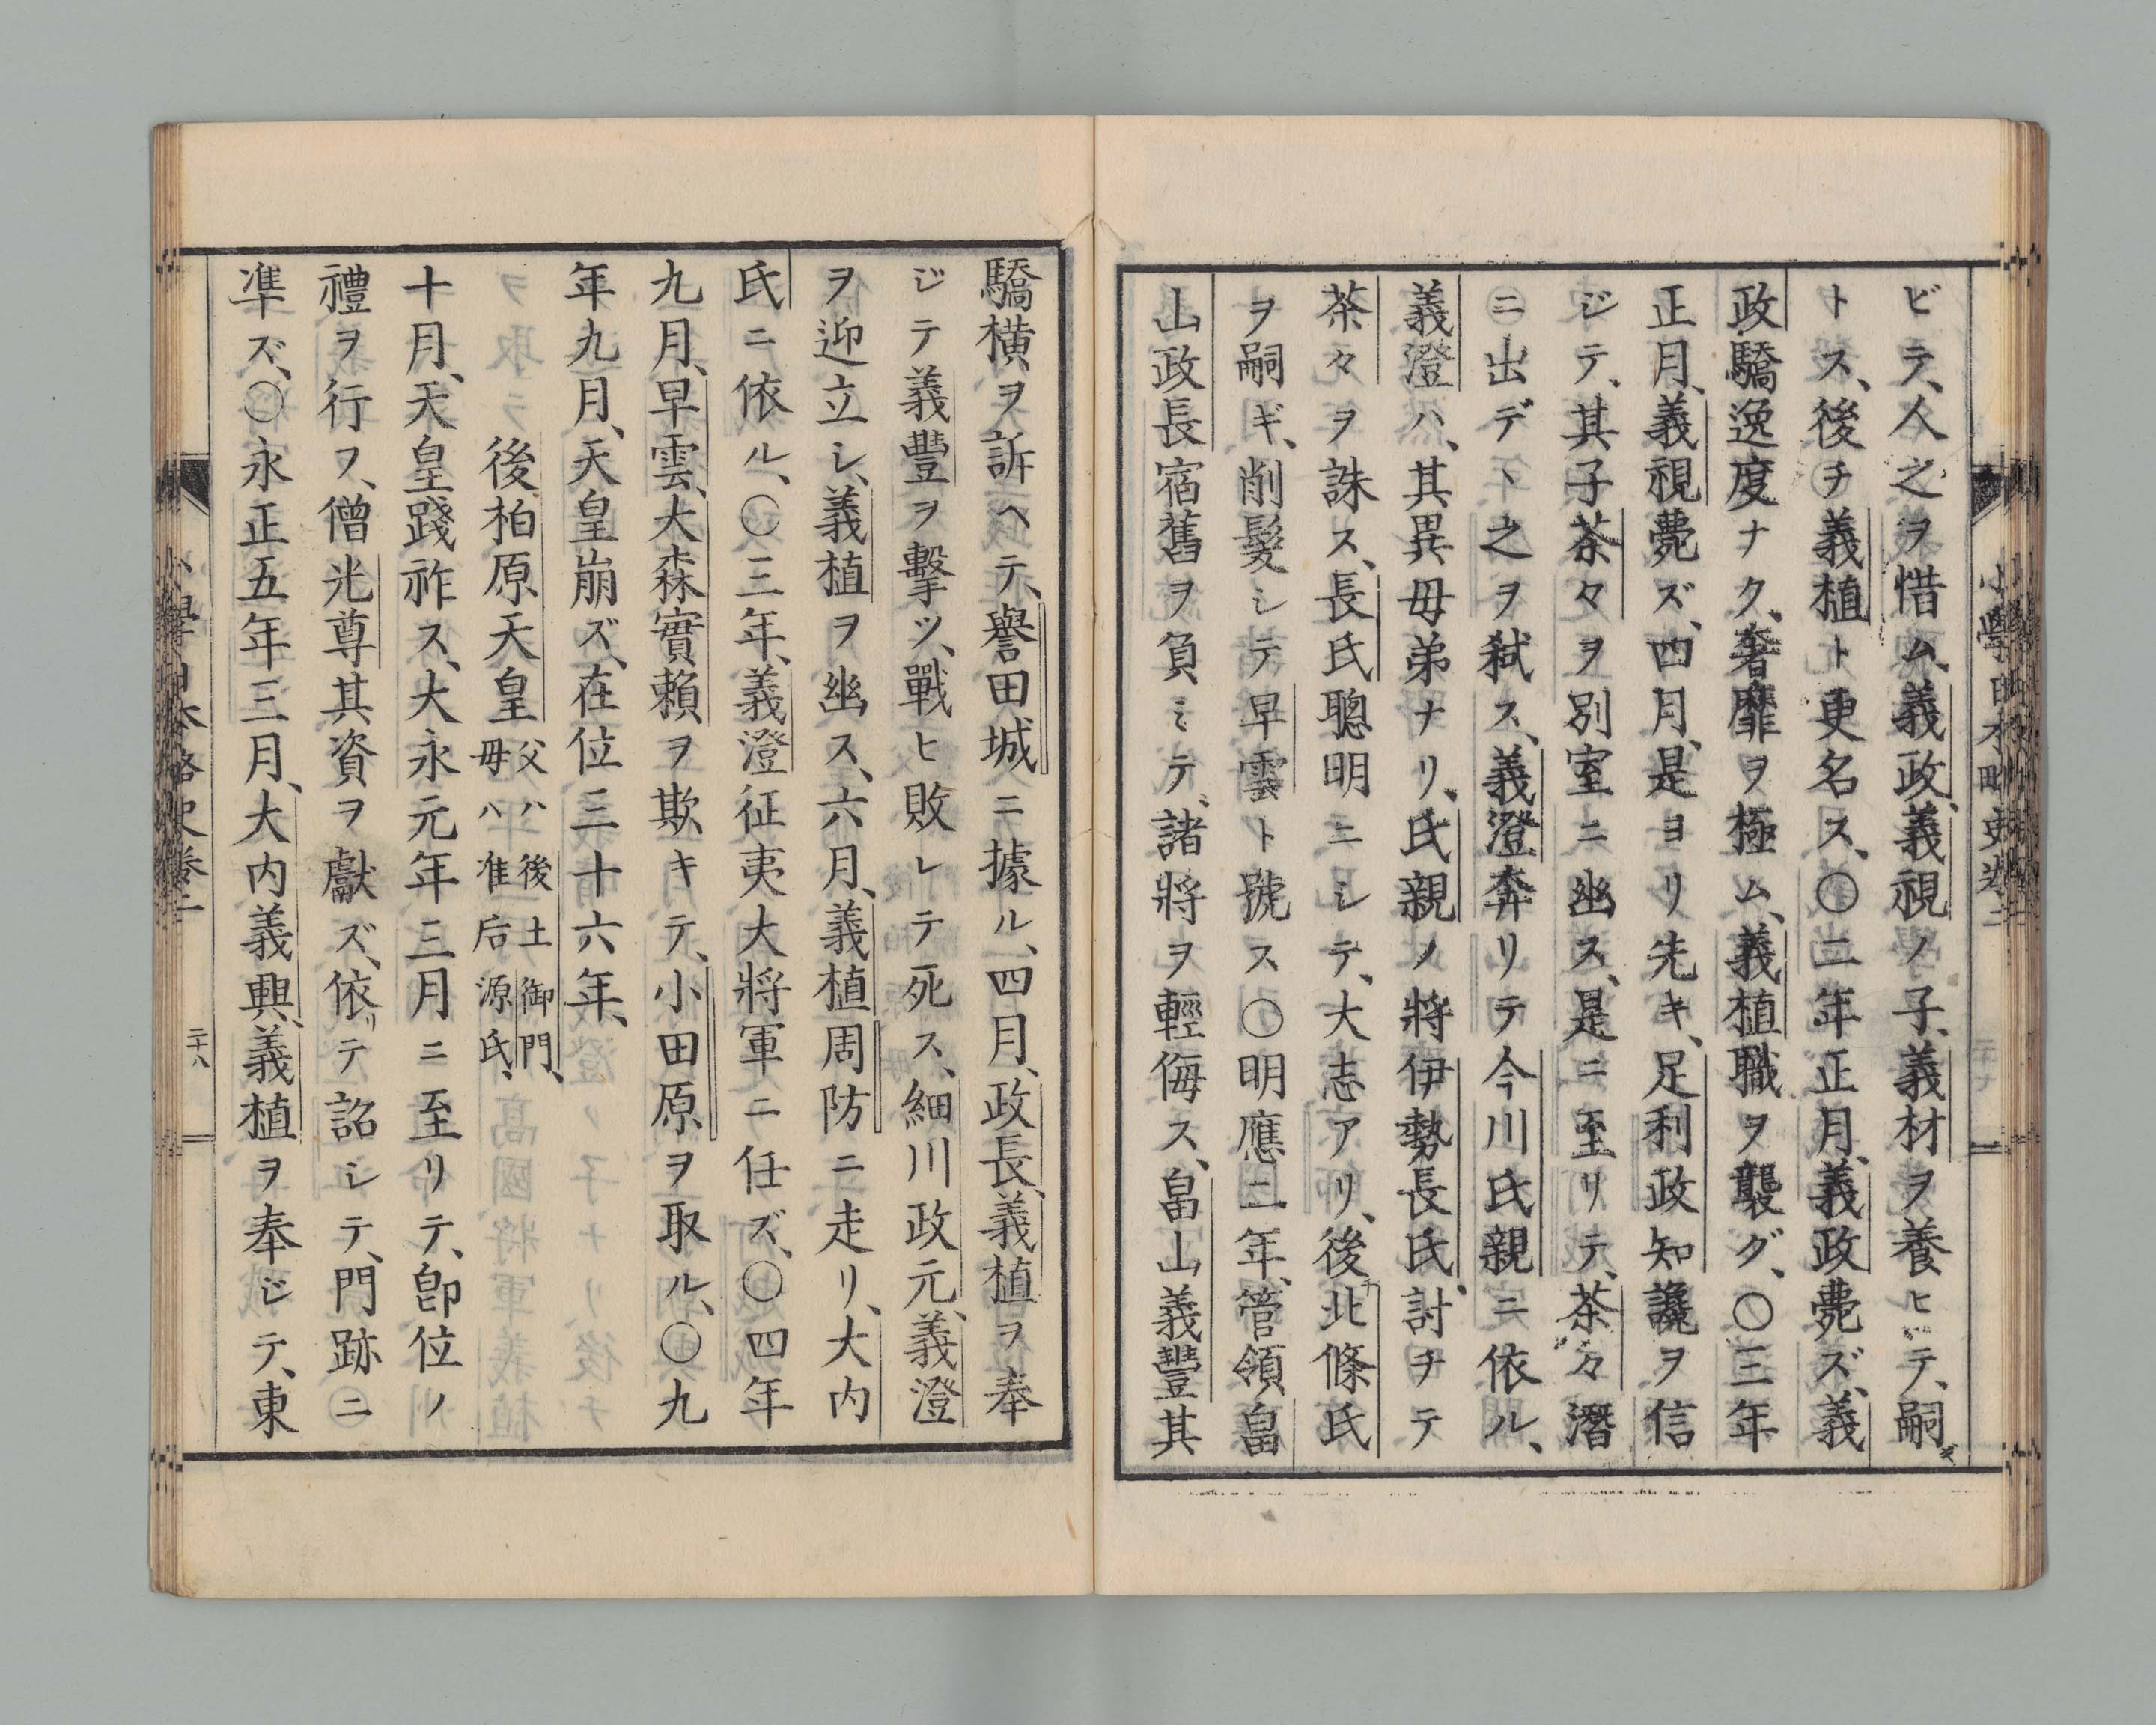 ビテ、人之ヲ惜ム、義政、義視ノ子、義材ヲ養ヒテ、嗣
トス、後チ義植ト更名ス、〇二年正月、義政薨ズ、義
政驕逸度ナク、奢靡ヲ極ム、義植職ヲ襲グ、〇三年
正月、義視薨ズ、四月、是ヨリ先キ、足利政知讒ヲ信
ジテ、其子茶々ヲ別室ニ幽ス、是ニ至リテ、茶々潛
ニ出デヽ之ヲ弑ス、義澄奔リテ今川氏親ニ依ル、
義澄ハ、其異母弟ナリ、氏親ノ將伊勢長氏、討チテ
茶々ヲ誅ス、長氏聰明ニシテ、大志アリ、後北條氏
ヲ嗣ギ、削髮シテ早雲ト號ス〇明應二年、管領畠
山政長宿舊ヲ負ミテ、諸將ヲ輕侮ス、畠山義豐其
小學日本略史卷二
驕横ヲ訴ヘテ、譽田城ニ據ル、四月、政長、義植ヲ奉
ジテ義豐ヲ擊ツ、戰ヒ敗レテ死ス、細川政元、義澄
ヲ迎立シ、義植ヲ幽ス、六月、義植周防ニ走リ、大内
氏ニ依ル、〇三年、義澄征夷大將軍ニ任ズ、〇四年
九月、早雲、大森實賴ヲ欺キテ、小田原ヲ取ル、〇九
年九月、天皇崩ズ、在位三十六年、
後柏原天皇父ハ後土御門、母ハ准后源氏、
十月、天皇踐祚ス、大永元年三月ニ至リテ、卽位ノ
禮ヲ行フ、僧光尊其資ヲ獻ズ、依リテ詔シテ、門跡ニ
準ズ、〇永正五年三月、大内義興、義植ヲ奉ジテ、東
小學日本略史卷二
二十八